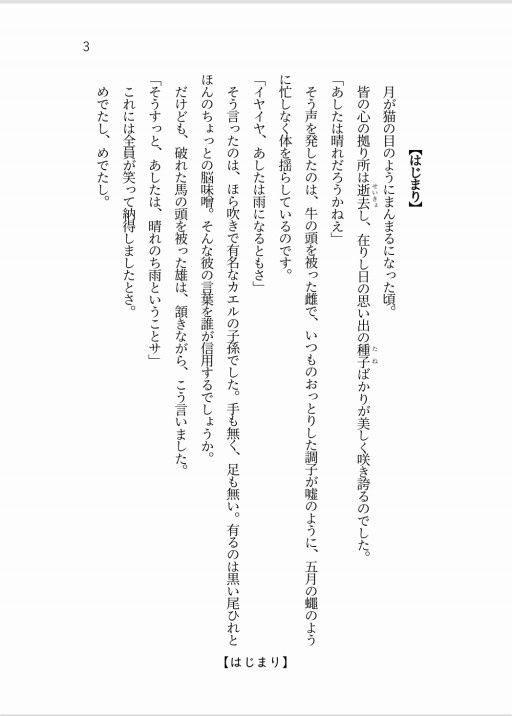 3
【はじまり】
月が猫の目のようにまんまるになった頃。
皆の心の拠り所は逝去し、在りし日の思い出の種子ばかりが美しく咲き誇るのでした。
せいきょ
たね
「あしたは晴れだろうかねえ」
そう声を発したのは、牛の頭を被った雌で、いつものおっとりした調子が嘘のように、五月の蠅のよう
に忙しなく体を揺らしているのです。
「イヤイヤ、あしたは雨になるともさ」
そう言ったのは、ほら吹きで有名なカエルの子孫でした。手も無く、足も無い。有るのは黒い尾ひれと
ほんのちょっとの脳味噌。そんな彼の言葉を誰が信用するでしょうか。
だけども、破れた馬の頭を被った雄は、頷きながら、こう言いました。
「そうすっと、あしたは、晴れのち雨ということサ」
これには全員が笑って納得しましたとさ。
めでたし、めでたし。
【はじまり】